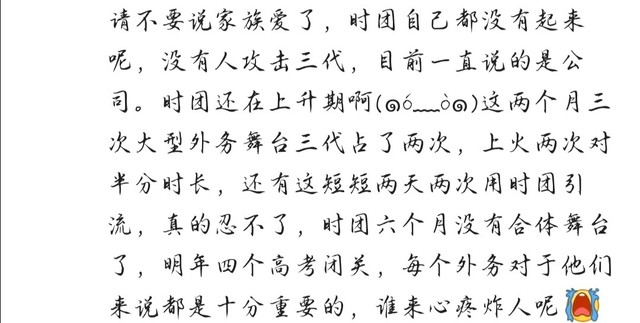 请不要说家族爱了，时团自己都没有起来
呢，没有人攻击三代，目前一直说的是公
司。时团还在上升期啊(๑ó﹏ò๑)这两个月三
次大型外务舞台三代占了两次，上火两次对
半分时长，还有这短短两天两次用时团引
流，真的忍不了，时团六个月没有合体舞台
了，明年四个高考闭关，每个外务对于他们
来说都是十分重要的，谁来心疼炸人呢